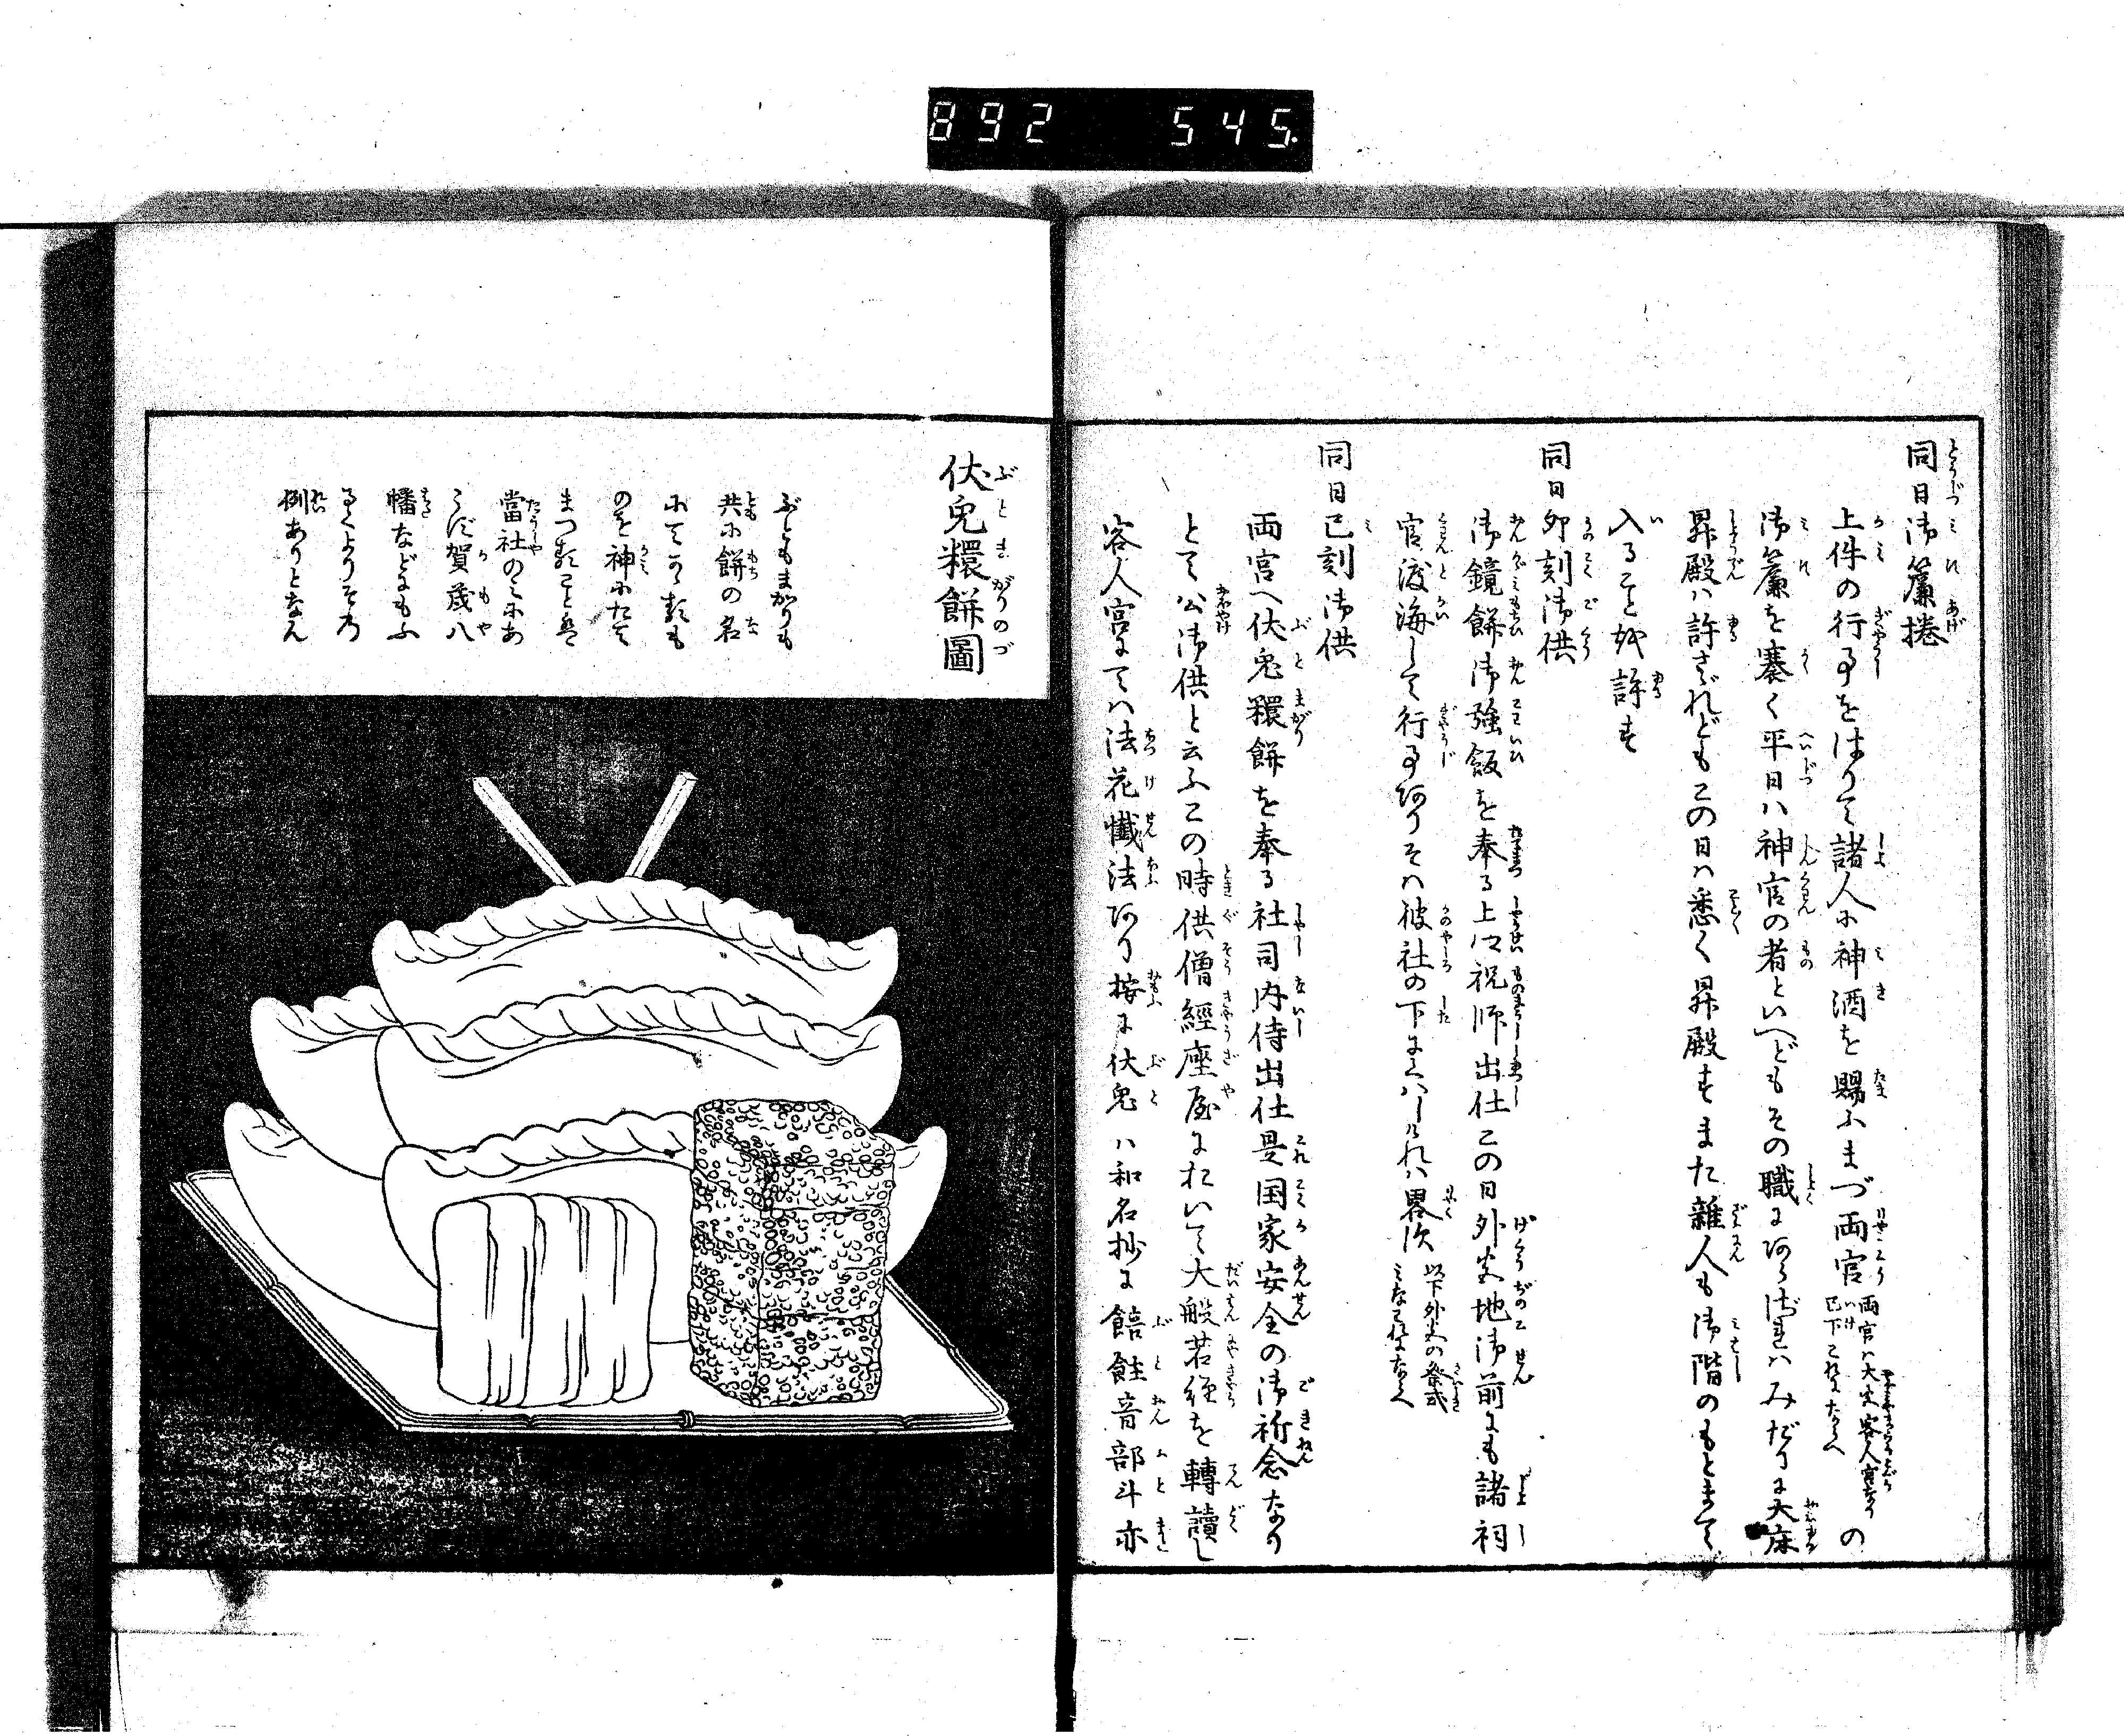 892 545
同日御簾捲
上件の行事をはりて諸人に神酒を賜ふまづ両宮両宮ハ大宮客人宮なり已下これにたぐへの
御簾を褰く平日ハ神官の者といへどもその職にあらざれハみだりに大床
昇殿ハ許さゞれどもこの日ハ悉く昇殿すまた雑人も御階のもとまで
入ることを許す
同日卯刻御供
御鏡餅御強飯を奉る上卿祝師出仕この日外宮地御前にも諸祠
官渡海して行事ありそハ彼社の下にいへれハ畧次以下外宮の祭式みなこれにたぐへ
同日巳刻御供
両宮へ伏兎糫餅を奉る社司内侍出仕是国家安全の御祈念なり
とて公御供と云ふこの時供僧經座屋において大般若経を轉讀し
客人宮にてハ法花懺法あり按に伏兎ハ和名抄に䭔飳音部斗亦
伏兎糫餅圖
ぶともまがりも
共に餅の名
にてかゝるも
のを神にたて
まつることは
當社のみにあ
らず賀茂八
幡などにもふ
るくよりその
例ありとなん